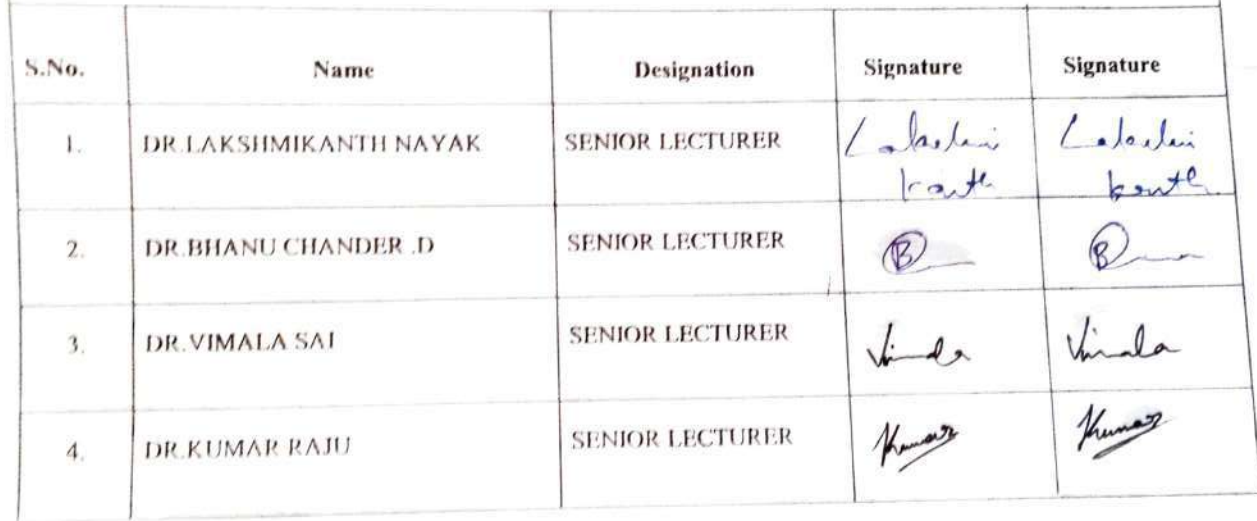 S.No. Name Designation Signature Signature
1. DR.LAKSHMIKANTH NAYAK SENIOR LECTURER Lakshmi Lakshmi
kanth kanth
2. DR.BHANU CHANDER .D SENIOR LECTURER B B
3. DR.VIMALA SAI SENIOR LECTURER Vimala Vimala
4. DR.KUMAR RAJU SENIOR LECTURER Kumar Kumar